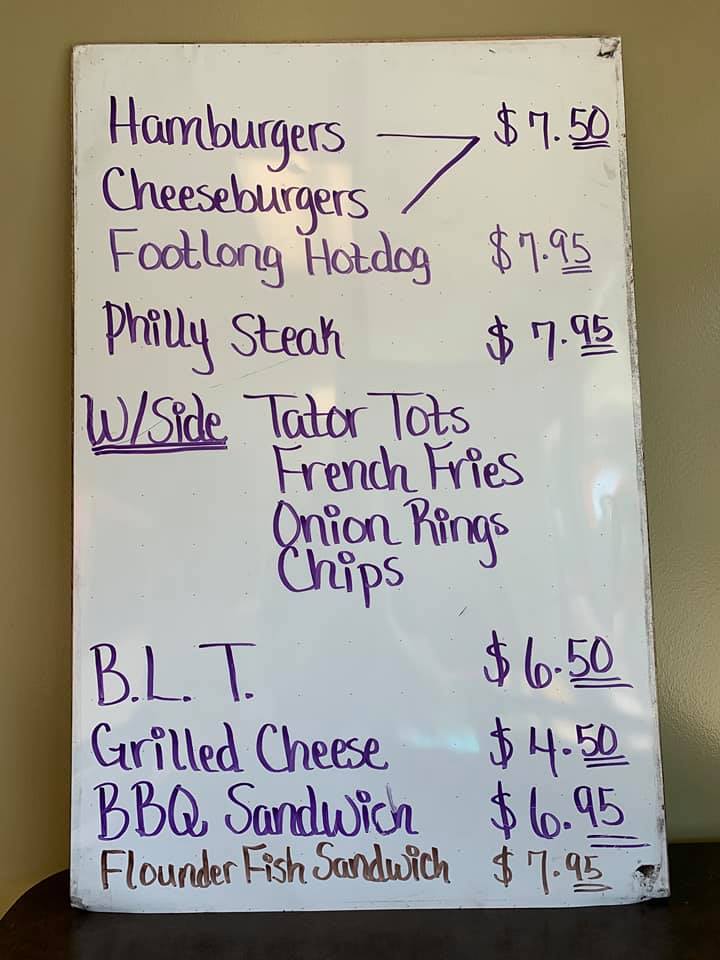 Hamburgers $7.50
Cheeseburgers
Footlong Hotdog $7.95
Philly Steak $7.95
W/Side Tator Tots
French Fries
Onion Rings
Chips
B.L.T. $6.50
Grilled Cheese $4.50
BBQ Sandwich $6.95
Flounder Fish Sandwich $7.95